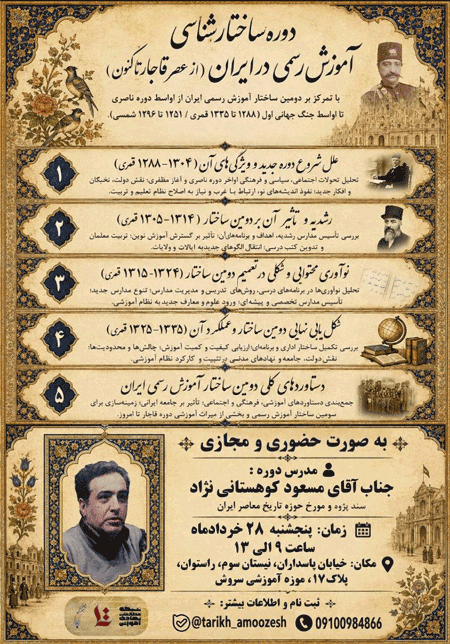 دوره ساختارشناسی
آموزش رسمی در ایران (از عصر قاجار تا کنون)
با تمرکز بر دومین ساختار آموزش رسمی ایران از اواسط دوره ناصری
تا اواسط جنگ جهانی اول (۱۲۸۸ تا ۱۳۳۵ قمری / ۱۲۵۱ تا ۱۲۹۶ شمسی).
۱
علل شروع دوره جدید و ویژگی‌های آن (۱۳۰۴-۱۲۸۸ قمری)
تحلیل تحولات اجتماعی، سیاسی و فرهنگی اواخر دوره ناصری و آغاز مظفری؛ نقش دولت، نخبگان
و افکار جدید؛ نفوذ اندیشه‌های نو، ارتباط با غرب و نیاز به اصلاح نظام تعلیم و تربیت.
۲
رشدیه و تأثیر آن بر دومین ساختار (۱۳۱۴-۱۳۰۵ قمری)
بررسی تأسیس مدارس رشدیه، اهداف و برنامه‌های‌آن؛ تأثیر بر گسترش آموزش نوین؛ تربیت معلمان
و تدوین کتب درسی؛ انتقال الگوهای جدیدبه ایالات و ولایات.
۳
نوآوری محتوایی و شکلی در تعمیم دومین ساختار (۱۳۲۴-۱۳۱۵ قمری)
تحلیل نوآوری‌ها در برنامه‌های درسی، روش‌های تدریس و مدیریت مدارس؛ تنوع مدارس جدید؛
تأسیس مدارس تخصصی و پیشه‌ای؛ ورود علوم و معارف جدید به نظام آموزشی.
۴
شکل یابی نهایی دومین ساختار و عملکرد آن (۱۳۳۵-۱۳۲۵ قمری)
بررسی تکمیل ساختار اداری و برنامه‌ای؛ارزیابی کیفیت و کمیت آموزش، چالش‌ها و محدودیت‌ها؛
نقش‌دولت، جامعه و نهادهای مدنی در تثبیت و کارکرد نظام آموزشی.
۵
دستاوردهای کلی دومین ساختار آموزش رسمی ایران
جمع‌بندی دستاوردهای آموزشی، فرهنگی و اجتماعی، تأثیر بر جامعه ایرانی؛ زمینه‌سازی برای
سومین ساختار آموزش رسمی و بخشی از میراث آموزشی دوره قاجار تا امروز.
به صورت حضوری و مجازی
مدرس دوره :
جناب آقای مسعود کوهستانی نژاد
سند پژوه و مورخ حوزه تاریخ معاصر ایران
زمان: پنجشنبه ۲۸ خردادماه
ساعت ۹ الی ۱۳
مکان: خیابان پاسداران، نیستان سوم، راستوان،
پلاک ۱۷، موزه آموزشی سروش
ثبت نام و اطلاعات بیشتر:
@tarikh_amoozesh 09100984866